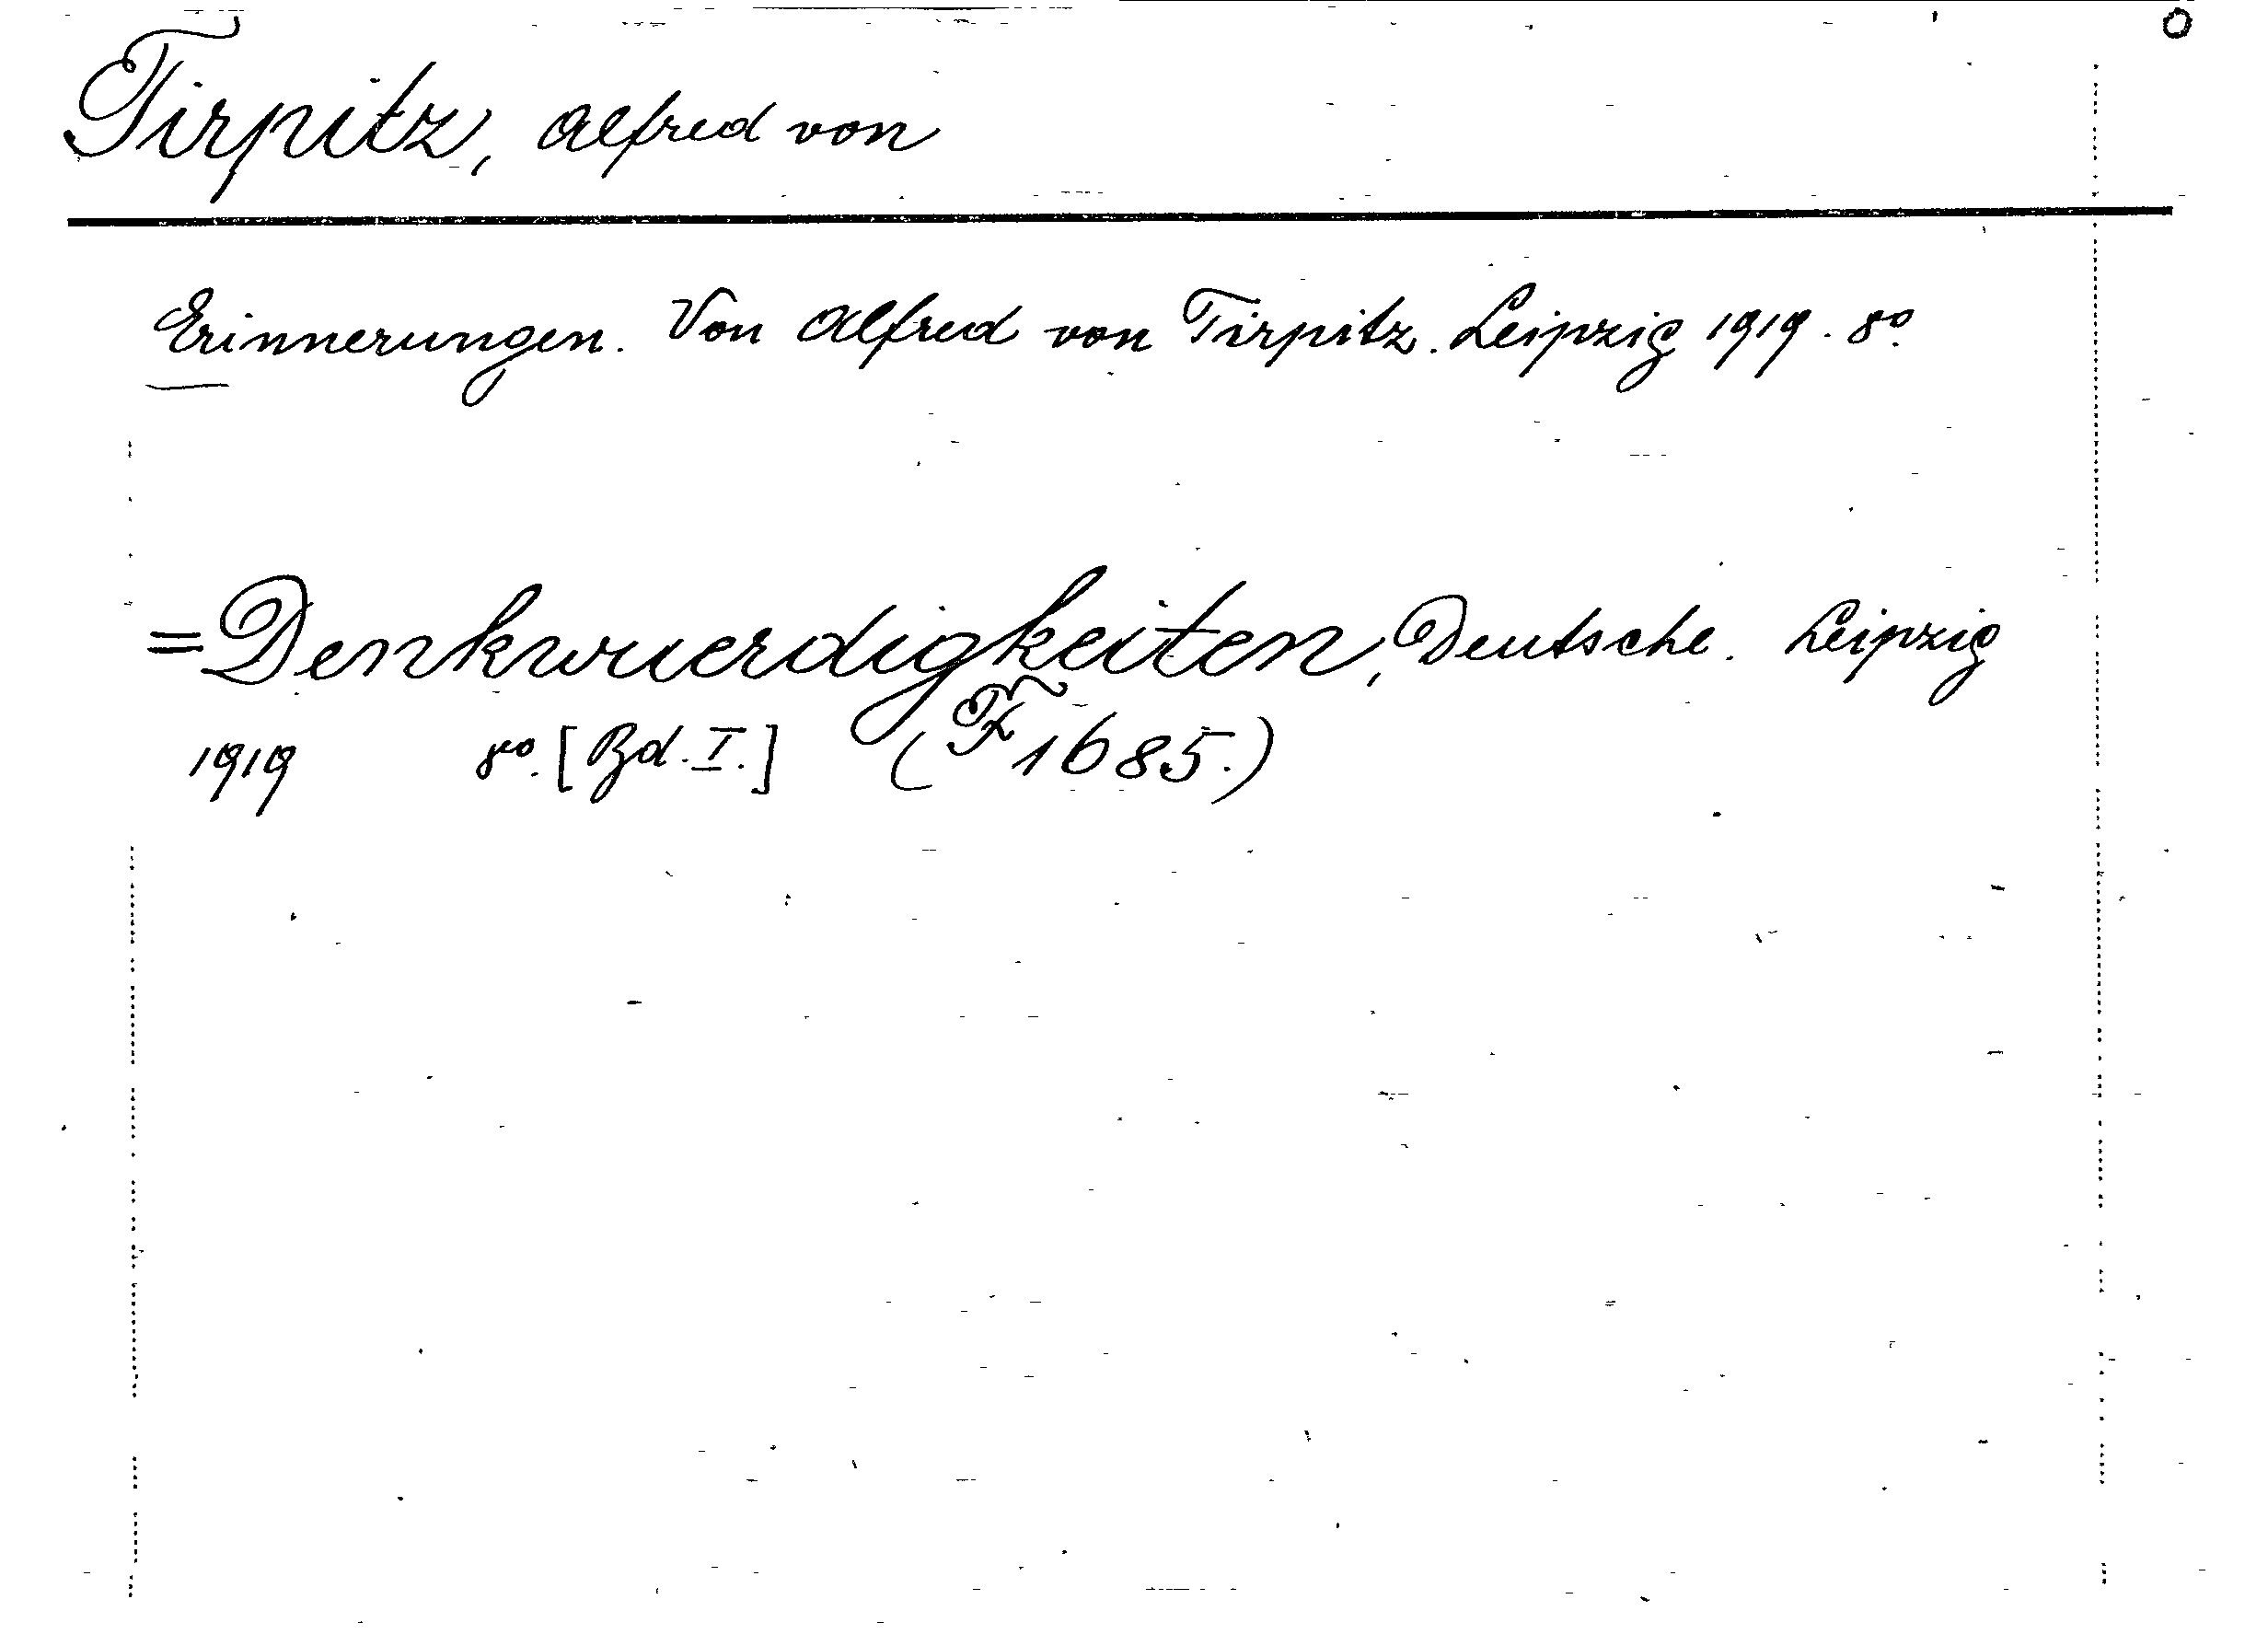 Tirpitz, Alfred von
Erinnerungen. Von Alfred von Tirpitz. Leipzig 1919. 8º.
=Denkwuerdigkeiten, Deutsche. Leipzig
1919 8º. [Bd. I.] (F 1685.)